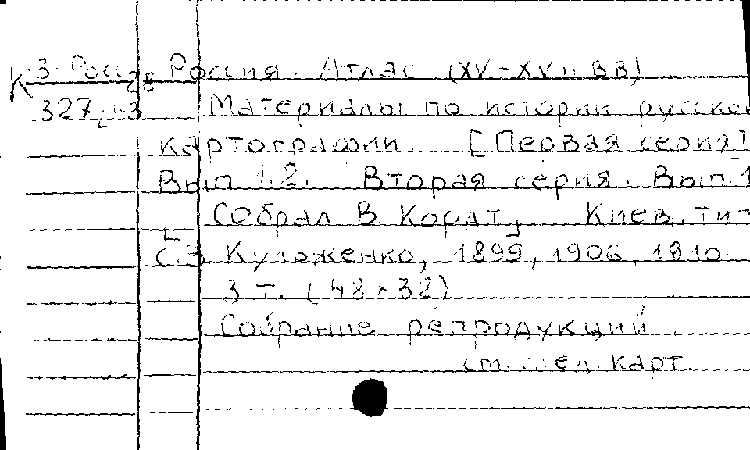 К 3. Росс Россия. Атлас (XV-XVII вв)
327 Материалы по истории русской
картографии. [Первая серия]
Вып 1.2. Вторая серия. Вып. 1
Собрал В Кордт, Киев, тит
С.В Кульженко, 1899, 1906, 1910
3 т. (48×32)
Собрание репродукций.
см. карт